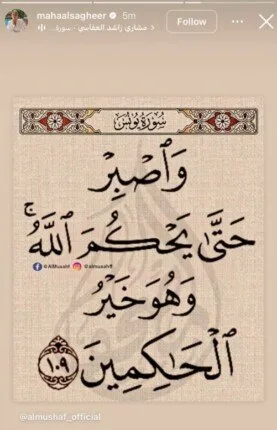 mahaalsagheer 5m
مشاري راشد العفاسي · سورة...
Follow
سُورَةُ يُونُسَ
وَٱصۡبِرۡ
حَتَّىٰ يَحۡكُمَ ٱللَّهُۚ
@AlMusahf @almusahf
وَهُوَ خَيۡرُ
ٱلۡحَٰكِمِينَ ١٠٩
@almushaf_official